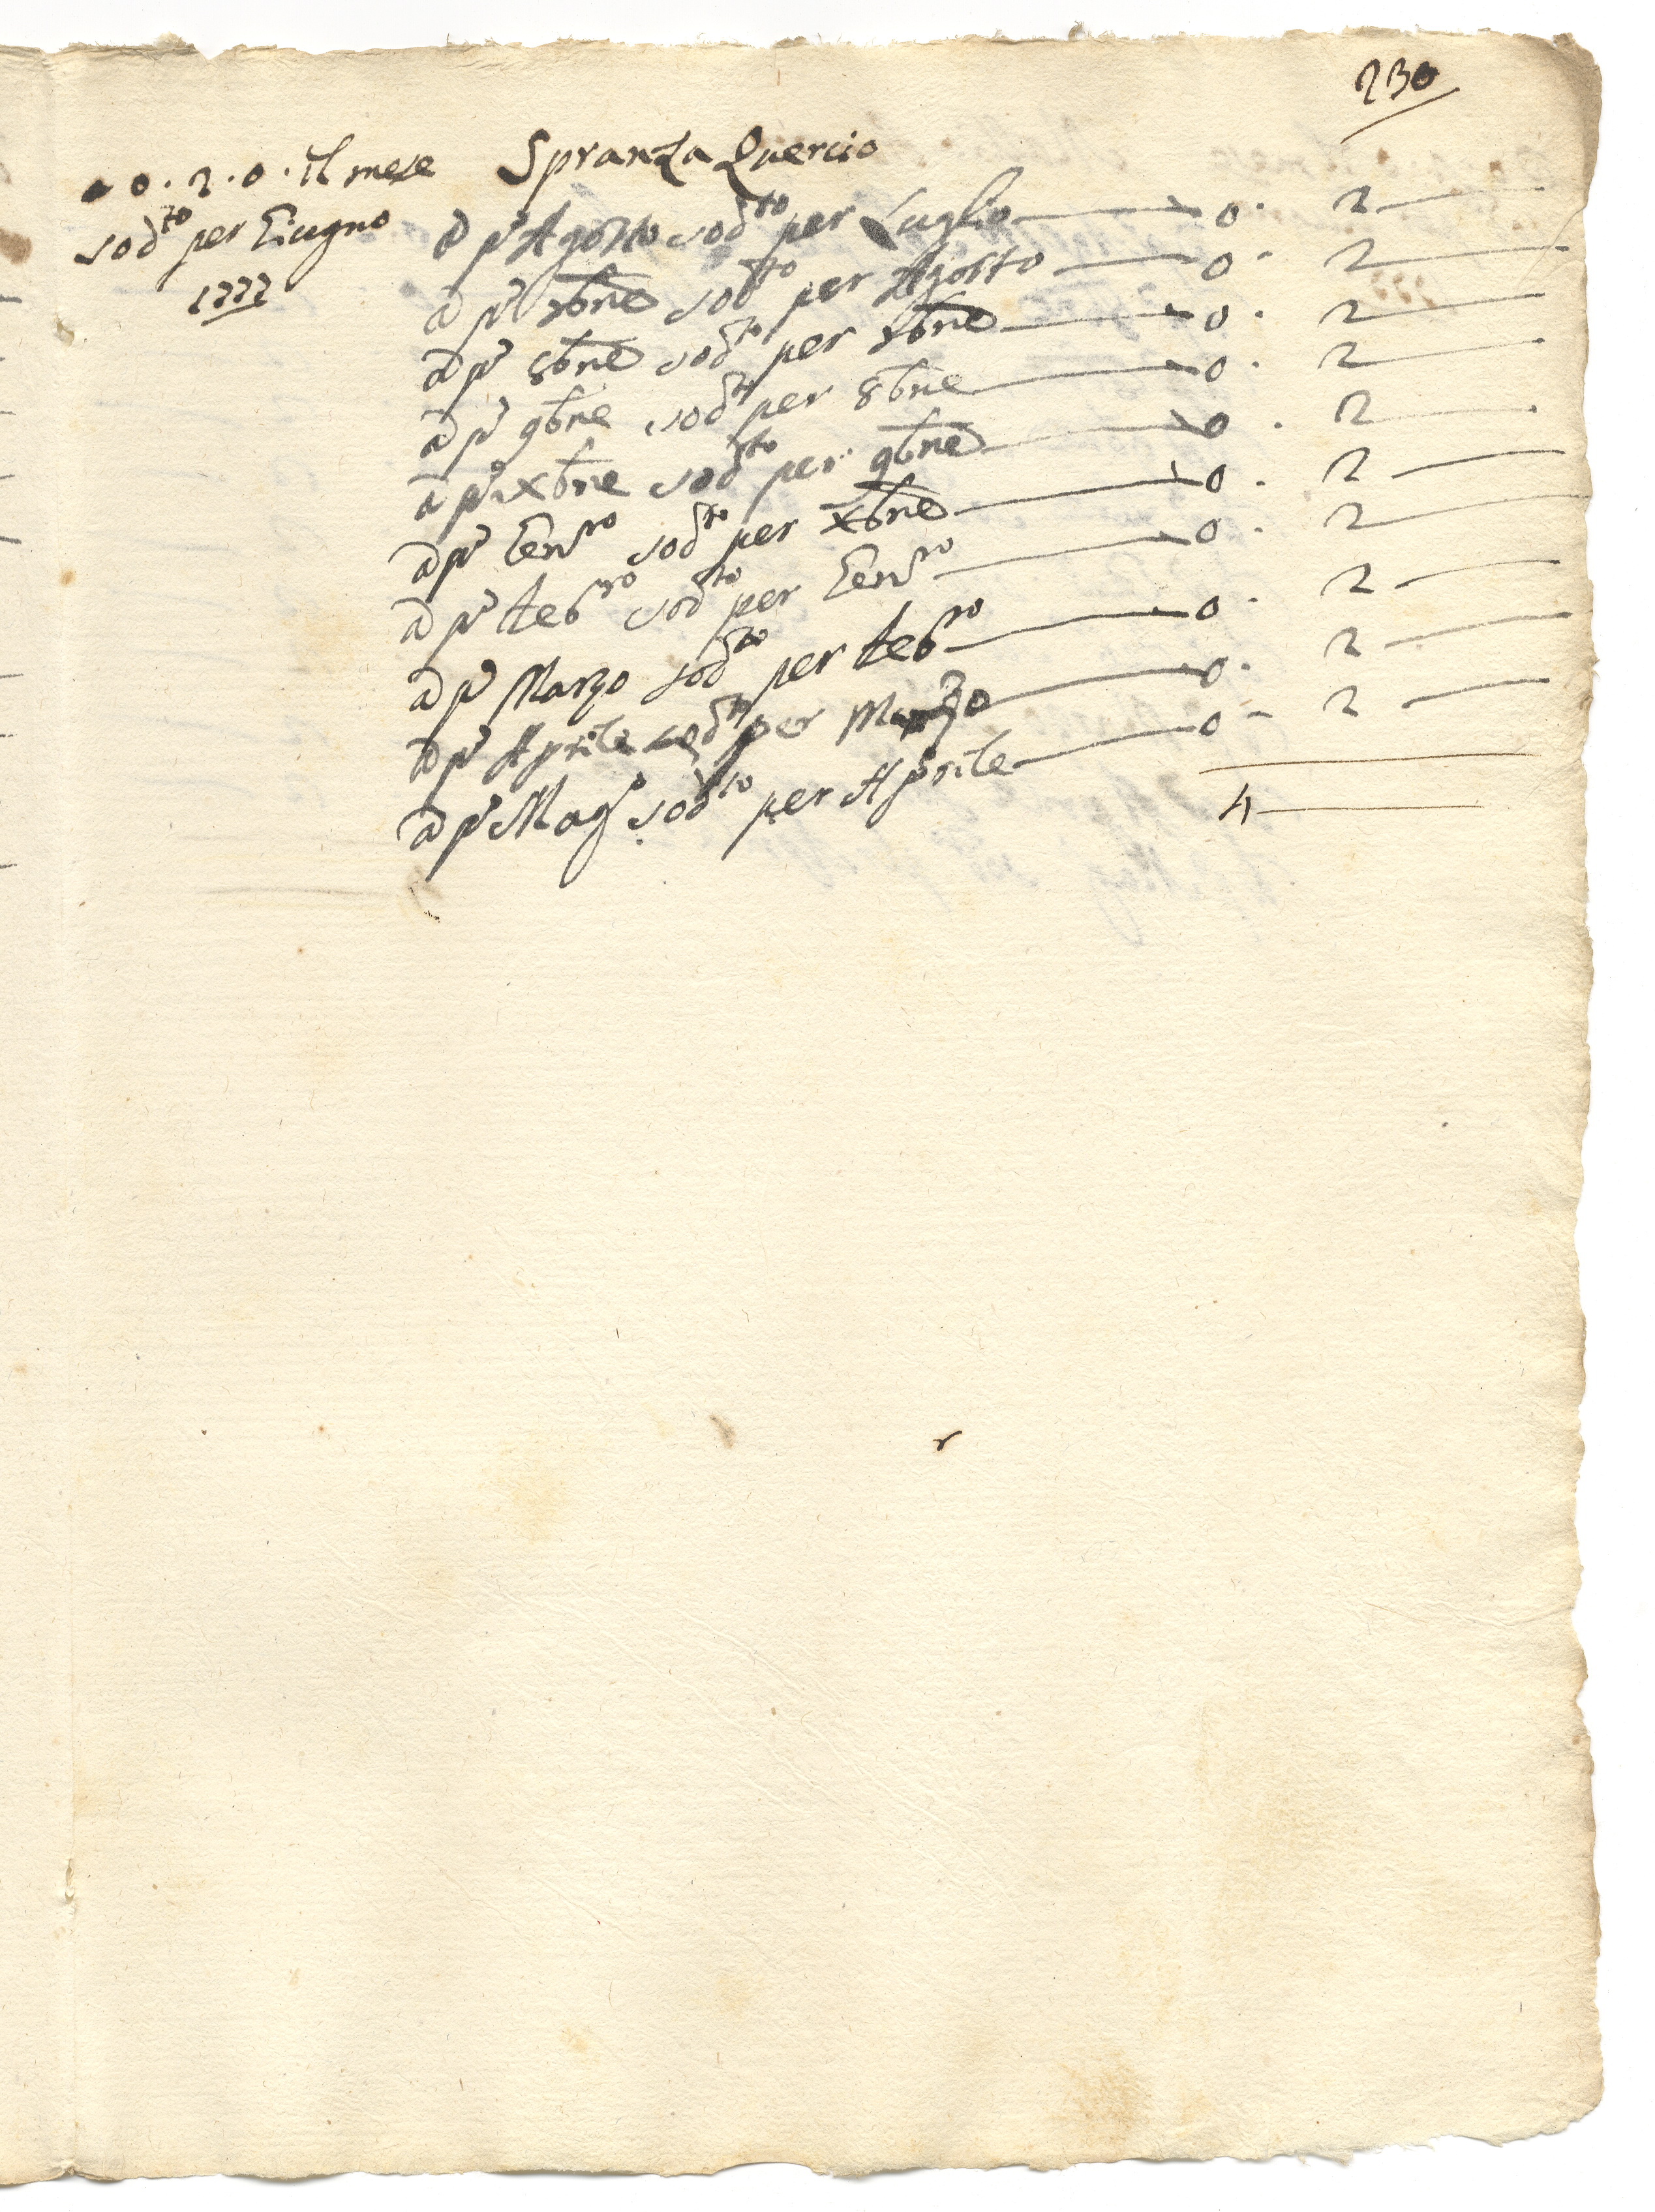 230
0.2.0. il mese
sodto per Giugno
1777
Spranza Quercio
a pro Agosto sodto per Luglio — 0. 2 —
a pro 7bre sodto per Agosto — 0. 2 —
a pro 8bre sodto per 7bre — 0. 2 —
a pro 9bre sodto per 8bre — 0. 2 —
a pro Xbre sodto per 9bre — 0. 2 —
a pro Genro sodto per Xbre — 0. 2 —
a pro Febro sodto per Genro — 0. 2 —
a pro Marzo sodto per Febro — 0. 2 —
a pro Aprile sodto per Marzo — 0. 2 —
a pro Mago sodto per Aprile — 0 - 2 —
4 —
r